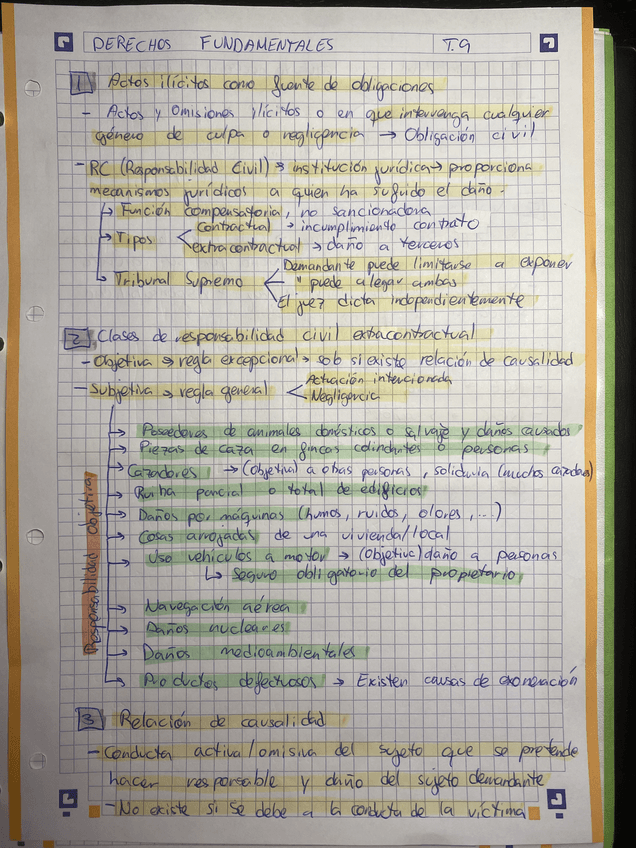 DERECHOS FUNDAMENTALES T.9
1 Actos ilícitos como fuente de obligaciones
- Actos y omisiones ilícitos o en que intervenga cualquier
género de culpa o negligencia → Obligación civil
- RC (Responsabilidad Civil) → institución jurídica → proporciona
mecanismos jurídicos a quien ha sufrido el daño.
→ Función compensatoria, no sancionadora
→ Tipos < contractual → incumplimiento contrato
extracontractual → daño a terceros
→ Tribunal Supremo < Demandante puede limitarse a exponer
" puede alegar ambas
El juez dicta independientemente
2 Clases de responsabilidad civil extracontractual
- Objetiva → regla excepcional → sob si existe relación de causalidad
- Subjetiva → regla general < Actuación intencionada
Negligencia
Responsabilidad Objetiva
→ Poseedores de animales domésticos o salvaje y daños causados
→ Piezas de caza en fincas colindantes o personas
→ Cazadores → (Objetiva) a otras personas, solidaria (muchos cazadores)
→ Ruina parcial o total de edificios
→ Daños por máquinas (humos, ruidos, olores, ...)
→ Cosas arrojadas de una vivienda/local
→ Uso vehículos a motor → (Objetiva) daño a personas
↳ Seguro obligatorio del propietario
→ Navegación aérea
→ Daños nucleares
→ Daños medioambientales
→ Productos defectuosos → Existen causas de exoneración
3 Relación de causalidad
- Conducta activa/omisiva del sujeto que se pretende
hacer responsable y daño del sujeto demandante
- No existe si se debe a la conducta de la víctima